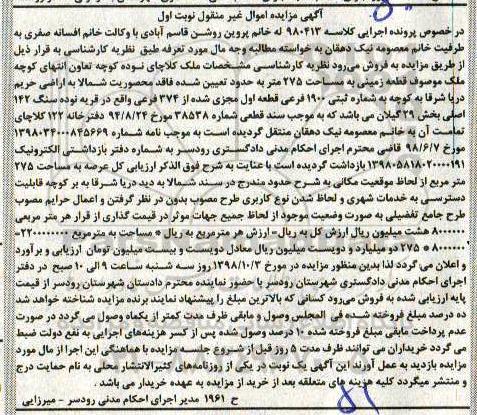 آگهی مزایده اموال غیر منقول نوبت اول
در خصوص پرونده اجرایی کلاسه ۹۸۰۴۱۳ له خانم پروین روشن قاسم آبادی با وکالت خانم افسانه صفری به
طرفیت خانم معصومه نیک دهقان به خواسته مطالبه وجه مال مورد تعرفه طبق نظریه کارشناسی به قرار ذیل
از طریق مزایده به فروش می‌رود نظریه کارشناسی مشخصات ملک کلاچای نوده کوچه تعاون انتهای کوچه
ملک موصوف قطعه زمینی به مساحت ۲۷۵ متر به حدود تعیین شده فاقد محصوریت شمالا به اراضی حریم
دریا شرقا به کوچه به شماره ثبتی ۱۹۰۰ فرعی قطعه اول مجزی شده از ۳۷۴ فرعی واقع در قریه نوده سنگ ۱۴۲
اصلی بخش ۲۹ گیلان می باشد که به موجب سند قطعی شماره ۳۸۵۳۸ مورخ ۹۴/۸/۲۴ دفترخانه ۱۲۲ کلاچای
تمامت آن به خانم معصومه نیک دهقان منتقل گردیده است به موجب نامه شماره ۱۳۹۸۰۳۴۰۰۰۸۴۵۶۶۹
مورخ ۹۸/۶/۷ قاضی محترم اجرای احکام مدنی دادگستری رودسر به شماره دفتر بازداشتی الکترونیک
۱۳۹۸۰۵۸۱۸۰۲۰۰۰۱۹۱ بازداشت گردیده است با عنایت به شرح فوق الذکر ارزیابی کل عرصه به مساحت ۲۷۵
متر مربع از لحاظ موقعیت مکانی به شرح حدود مندرج در سند شمالا به دید دریا شرقا به بر کوچه قابلیت
دسترسی به خدمات شهری و لحاظ شدن نوع کاربری طرح مصوب بدون در نظر گرفتن و اعمال حرایم مصوب
طرح جامع تفضیلی به صورت وضعیت موجود از لحاظ جمیع جهات موثر در قیمت گذاری از قرار هر متر مربعی
۸۰۰۰۰۰۰ هشت میلیون ریال ارزش کل به ریال- ارزش هر مترمربع به ریال * مساحت به مترمربع
۸۰۰۰۰۰۰ * ۲۷۵ دو میلیارد و دویست میلیون ریال معادل دویست و بیست میلیون تومان ارزیابی و برآورد
و اعلان می گردد لذا بدین منظور مزایده در مورخ ۱۳۹۸/۱۰/۳ روز سه شنبه ساعت ۹ الی ۱۰ صبح در دفتر
اجرای احکام مدنی دادگستری شهرستان رودسر با حضور نماینده محترم دادستان شهرستان رودسر از قیمت
پایه ارزیابی شده به فروش می‌رود کسانی که بالاترین مبلغ را پیشنهاد نمایند برنده مزایده شناخته خواهد شد
ده درصد مبلغ فروخته شده فی المجلس وصول و مابقی ظرف مدت کمتر از یکماه وصول می گردد در صورت
عدم پرداخت مابقی مبلغ فروخته شده ۱۰ درصد وصول شده پس از کسر هزینه‌های اجرایی به نفع دولت ضبط
می گردد خریداران می توانند ظرف مدت ۵ روز قبل از شروع جلسه مزایده با هماهنگی این اجرا از مال مورد
مزایده بازدید به عمل آورند این آگهی یک نوبت در یکی از روزنامه‌های کثیرالانتشار محلی به نام حمایت درج
و منتشر میگردد کلیه هزینه های متعلقه بعد از خرید از مزایده به عهده خریدار می باشد .
ح ۱۹۶۱ مدیر اجرای احکام مدنی رودسر - میرزایی